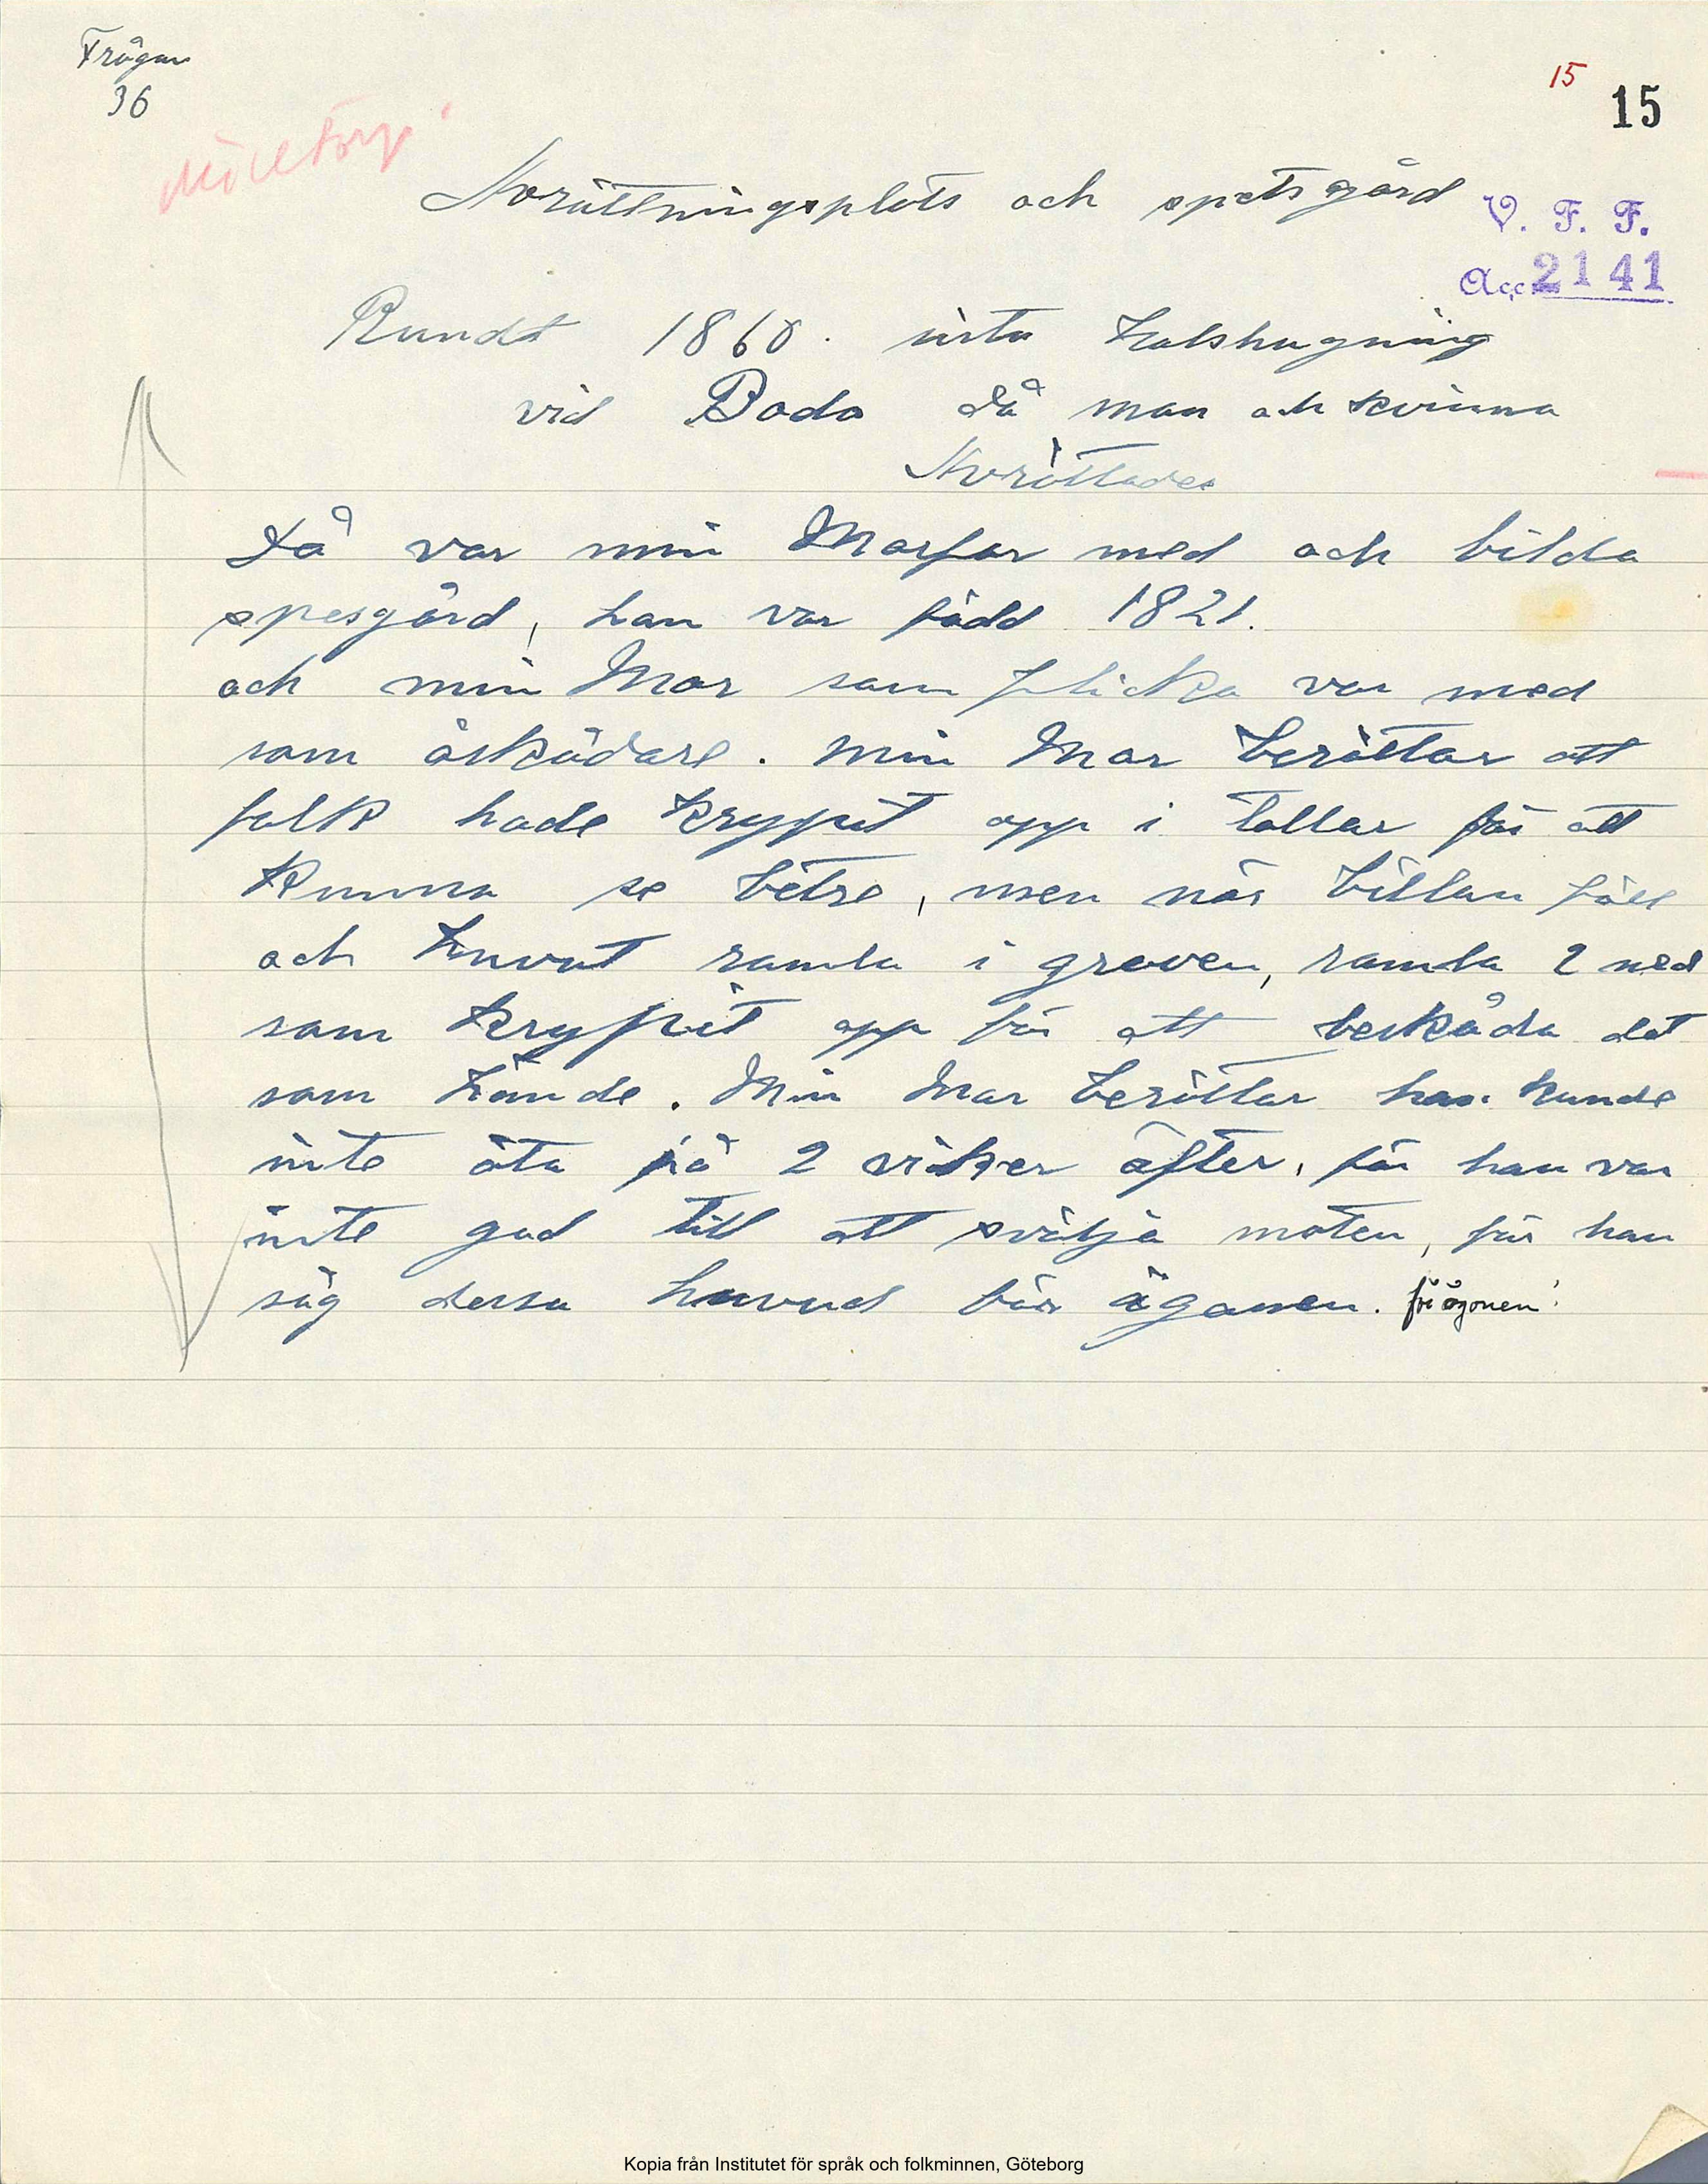 Frågan
36
15
15
Mölltorp
Avrättningsplats och spetsgård
V. F. F.
Acc. 2141
Rundt 1860. sista halshugning
vid Boda då man och kvinna
Avrättades
Då var min Morfar med och bilda
spesgård, han var född 1821.
och min Mor som flicka var med
som åskådare. Min Mor berättar att
folk hade krypit opp i tallar för att
kunna se bètre, men när billan föll
och huvut ramla i graven, ramla 2 ned
som krypit opp för att beskåda det
som hände. Min Mor berättar hon kunde
inte äta på 2 viker äfter, för han var
inte god till att svälja maten, för han
såg dessa huvud för ögonen. för ögonen!
Kopia från Institutet för språk och folkminnen, Göteborg